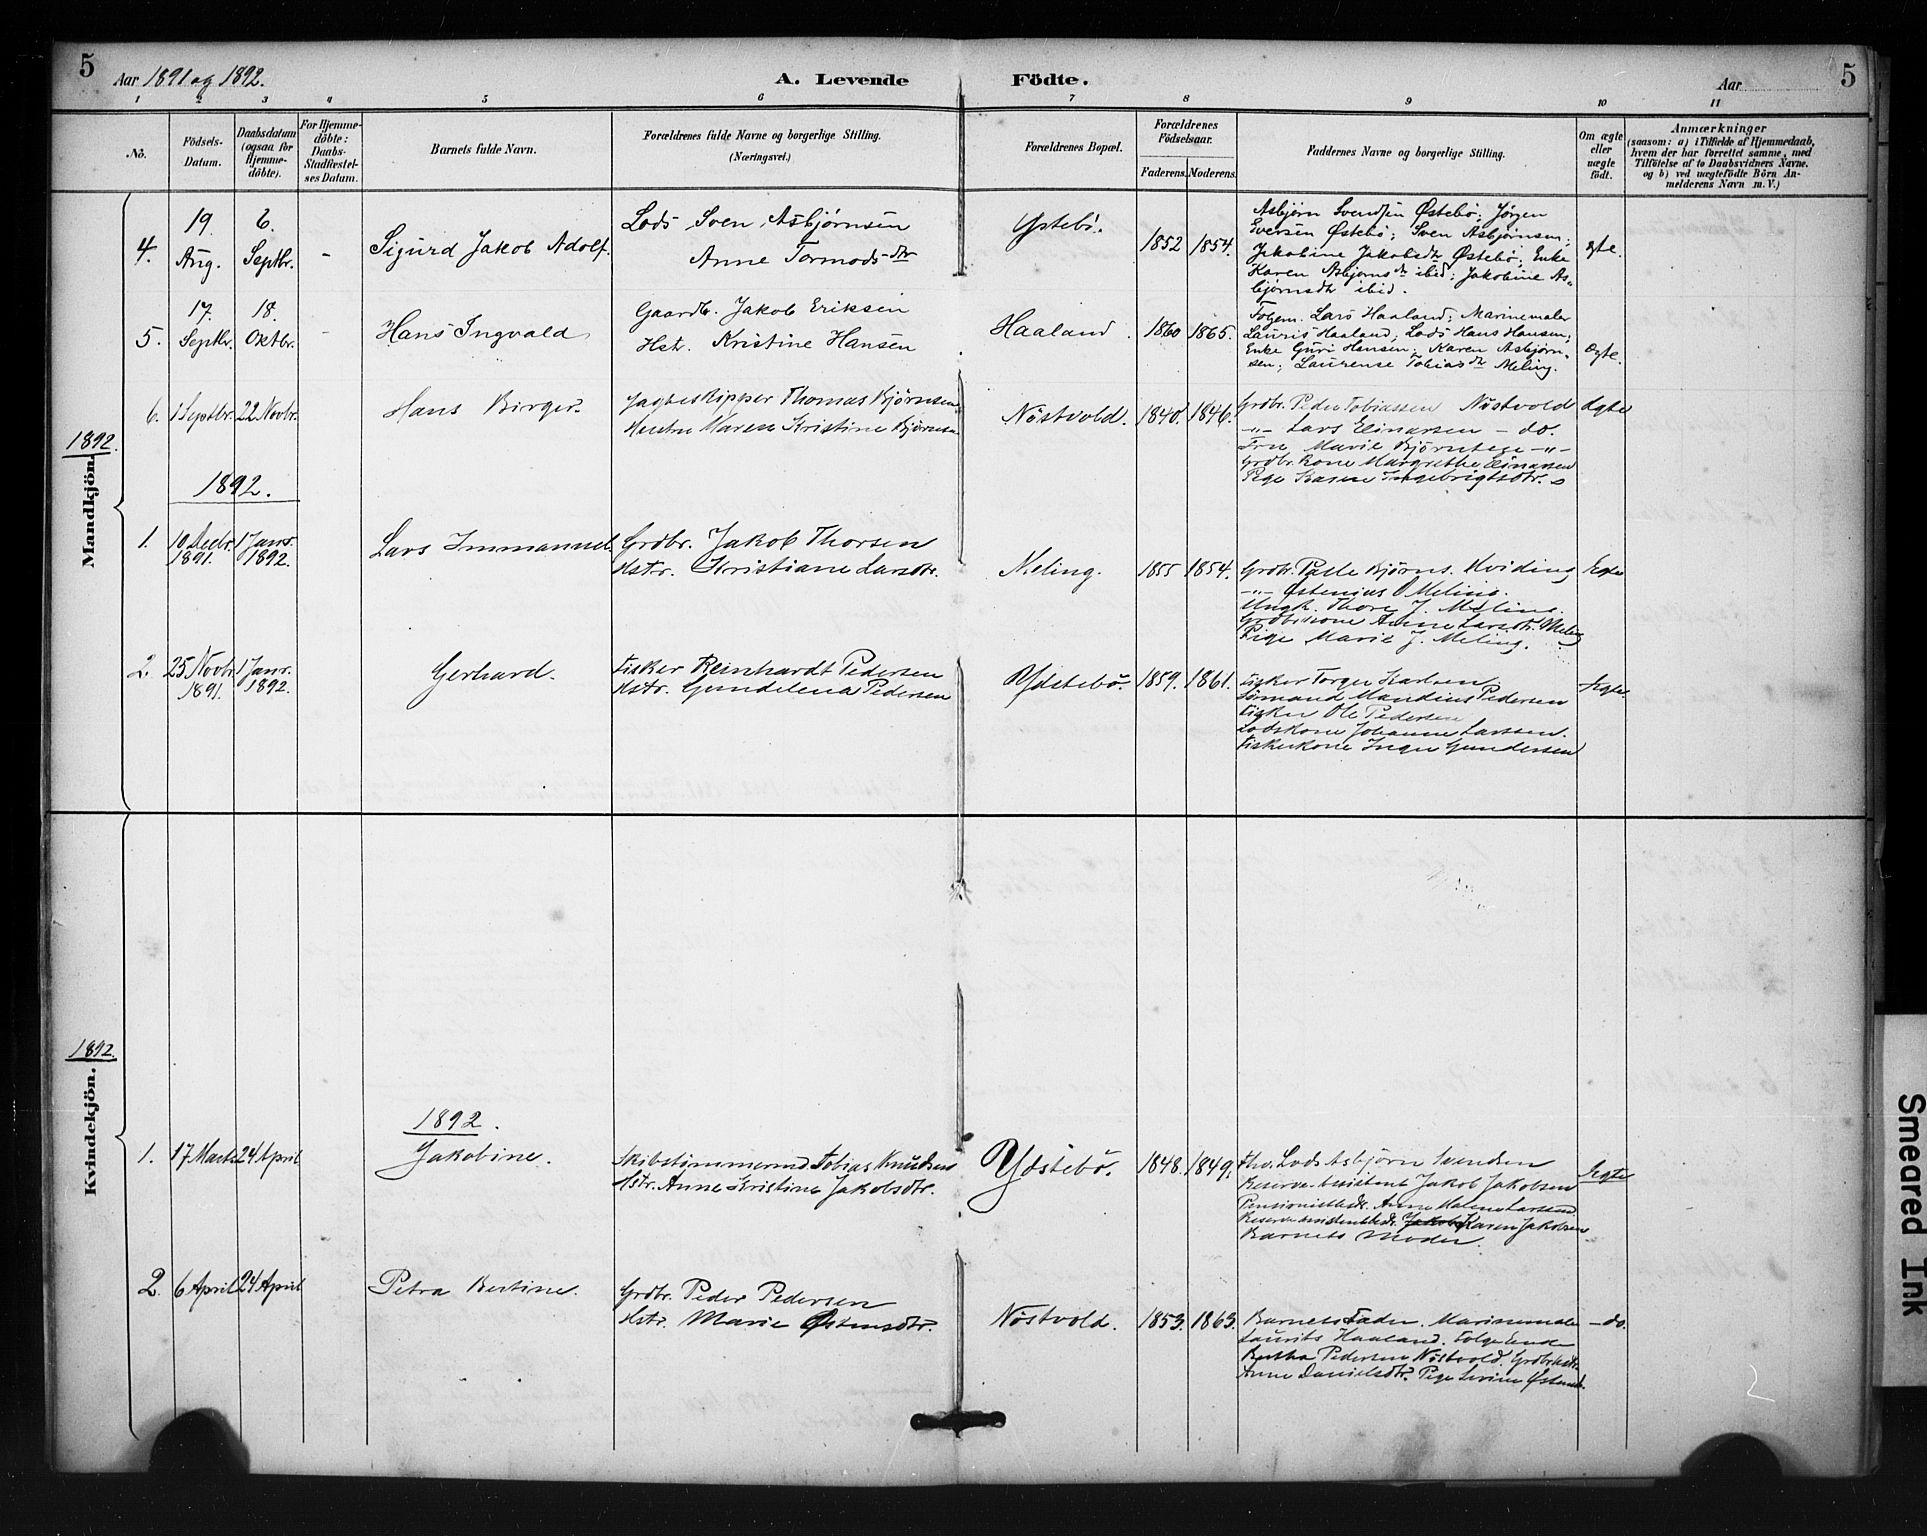 5
Aar 1891 og 1892.
A. Levende Födte.
Aar
5
1 2 3 4 5 6 7 8 9 10 11
No.
Födsels-Datum.
Daabsdatum (ogsaa for Hjemme-döbte).
For Hjemme-döbte: Daabs-Stadfæstel-ses Datum.
Barnets fulde Navn.
Forældrenes fulde Navne og borgerlige Stilling.
(Næringsvei.)
Forældrenes Bopæl.
Forældrenes Födselsaar.
Faderens. Moderens.
Faddernes Navne og borgerlige Stilling.
Om ægte eller uægte födt.
Anmærkninger
(saasom: a) i Tilfælde af Hjemmedaab,
hvem der har forrettet samme, med
Tilföielse af to Daabsvidners Navne.
og b) ved uægtefödte Börn An-
melderens Navn m. V.)
1892.
Mandkjön.
4. 19. Aug. 6. Septbr. - Sigurd Jakob Adolf.
Lods Sven Asbjørnsen
Anne Tormodsdtr
Ystebö. 1852 1854.
Asbjörn Svendsen Østebö; Jörgen
Sversen Østebö; Sven Asbjönsen;
Jakobine Jakobsdtr Østebö; Enke
Karen Asbjørnsdtr ibid; Jakobine As-
bjørnsdtr ibid.
ægte.
5. 17. Septbr. 18. Oktbr. - Hans Ingvald
Gaardb. Jakob Eriksen
Hstr. Kristine Hansen
Haaland. 1860 1865.
Folgem. Lars Haaland; Marinemaler
Laurits Haaland; Lods Hans Hansen;
Enke Guri Hansen, Karen Asbjørn-
sen; Laurense Tobiasdtr Meling.
Ægte.
6. 1 Septbr. 22 Novbr. Hans Birger.
Jagteskipper Thomas Bjørnsen
Hustru Maren Kristine Bjørnsen
Nöstvold. 1840. 1846.
Grdbr. Peder Tobiassen Nöstvold
-"- Lars Einarsen - do.
Fru Marie -"-
Grdbr. kone Margrethe Einarsen
Pige Karen Ingebrigtsdtr.
Ægte
1892.
1. 10 Decbr. 1891. 1 Janr. 1892. Lars Immanuel.
Grdbr. Jakob Thorsen
Hstr. Kristiane Larsdtr.
Meling. 1855 1854.
Grdbr. Palle Bjørns. Kviding
-"- Östenius O Meling.
Ungk. Thore J. Meling.
Grdbrkone Anne Larsdtr. Meling
Pige Marie J. Meling.
Ægte
2. 25 Novbr. 1891. 1 Janr. 1892. Gerhard.
Fisker Reinhardt Pedersen
Hstr. Gundelena Pedersen
Ydstebö. 1859. 1861.
Fisker Torger Karlsen
Sömand Mandius Pedersen
Fisker Ole Pedersen
Lodskone Johanne Larssen.
Fiskerkone Inger Gundersen
Ægte.
1892.
Kvindekjön.
1892.
1. 17 Marts 24 April Jakobine.
Skibstömmermd. Tobias Knudsen
Hstr. Anne Kristine Jakobsdtr.
Ydstebö. 1848. 1849.
Lods Asbjörn Svendsen
Reserve-Assistent Jakob Jakobsen
Anne Malene Larsen
Karen Jakobsen
Barnets Moder.
Ægte
2. 6 April 24 April Petra Bertine.
Grdbr. Peder Pedersen
Hstr. Marie Østensdtr.
Nöstvold. 1853. 1863.
Barnets Fader. Marinemaler
Laurits Haaland. Folge Enke
Bertha Pedersen Nöstvold.
Anne Danielsdtr. Pige
- do.
2
Smeared Ink